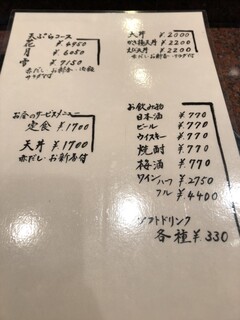 天ぷらコース
花 ¥4950
月 ¥6050
雪 ¥7150
赤だし・お新香・御飯
サラダ付
お昼のサービスメニュー
定食 ¥1700
天丼 ¥1700
赤だし・お新香付
天丼 ¥2000
かき揚天丼 ¥2200
えび天丼 ¥2200
赤だし・お新香・サラダ付
お飲み物
日本酒 ¥770
ビール ¥770
ウイスキー ¥770
焼酎 ¥770
梅酒 ¥770
ワイン ハーフ ¥2750
フル ¥4400
ソフトドリンク
各種 ¥330